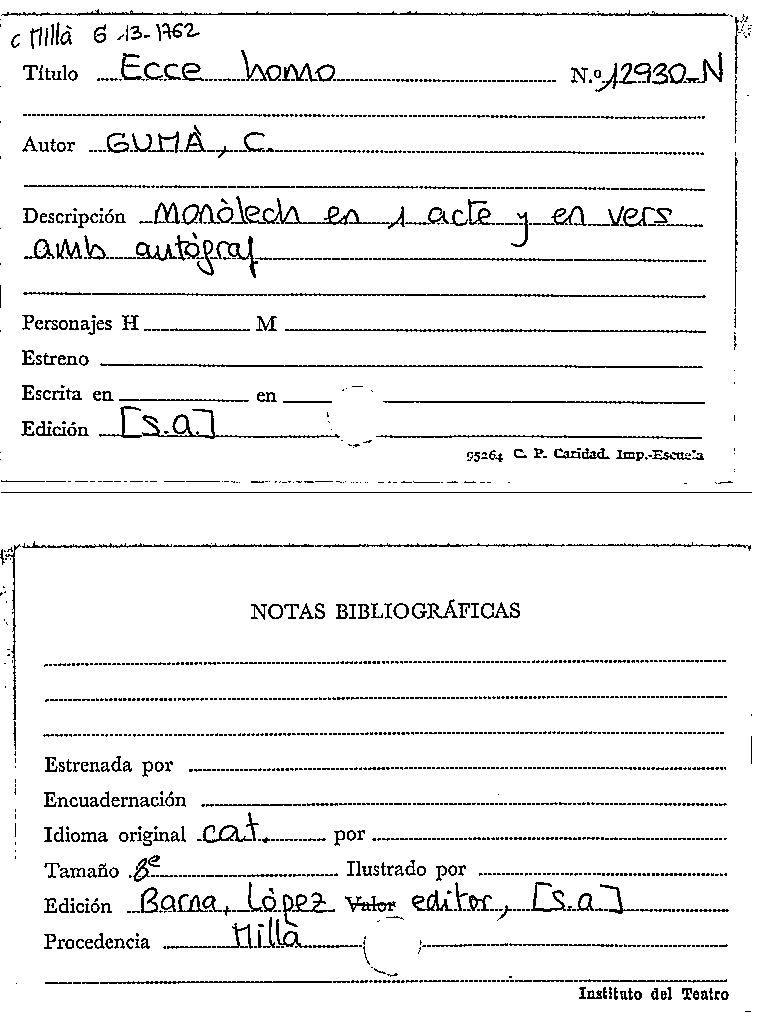 c Millà G-13-1762
Título Ecce homo N.º 12930-N
Autor GUMÀ, C.
Descripción Monòlech en 1 acte y en vers
amb autògraf
Personajes H M
Estreno
Escrita en en
Edición [S.a.]
95264 C. P. Caridad. Imp.-Escuela
NOTAS BIBLIOGRÁFICAS
Estrenada por
Encuadernación
Idioma original cat. por
Tamaño 8º Ilustrado por
Edición Barna, López Valor editor, [S.a]
Procedencia Millà
Instituto del Teatro